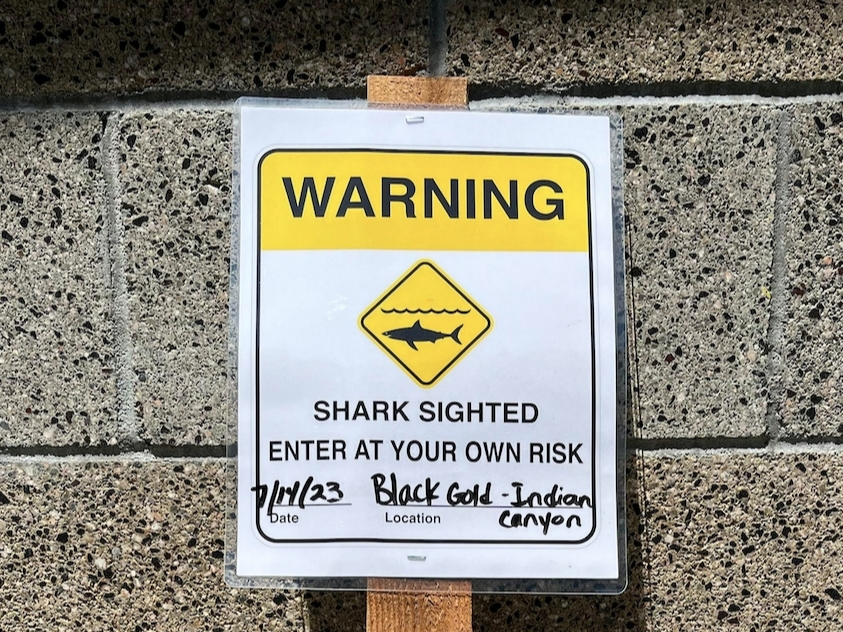 WARNING
SHARK SIGHTED
ENTER AT YOUR OWN RISK
7/14/23 Black Gold - Indian
Date Location Canyon